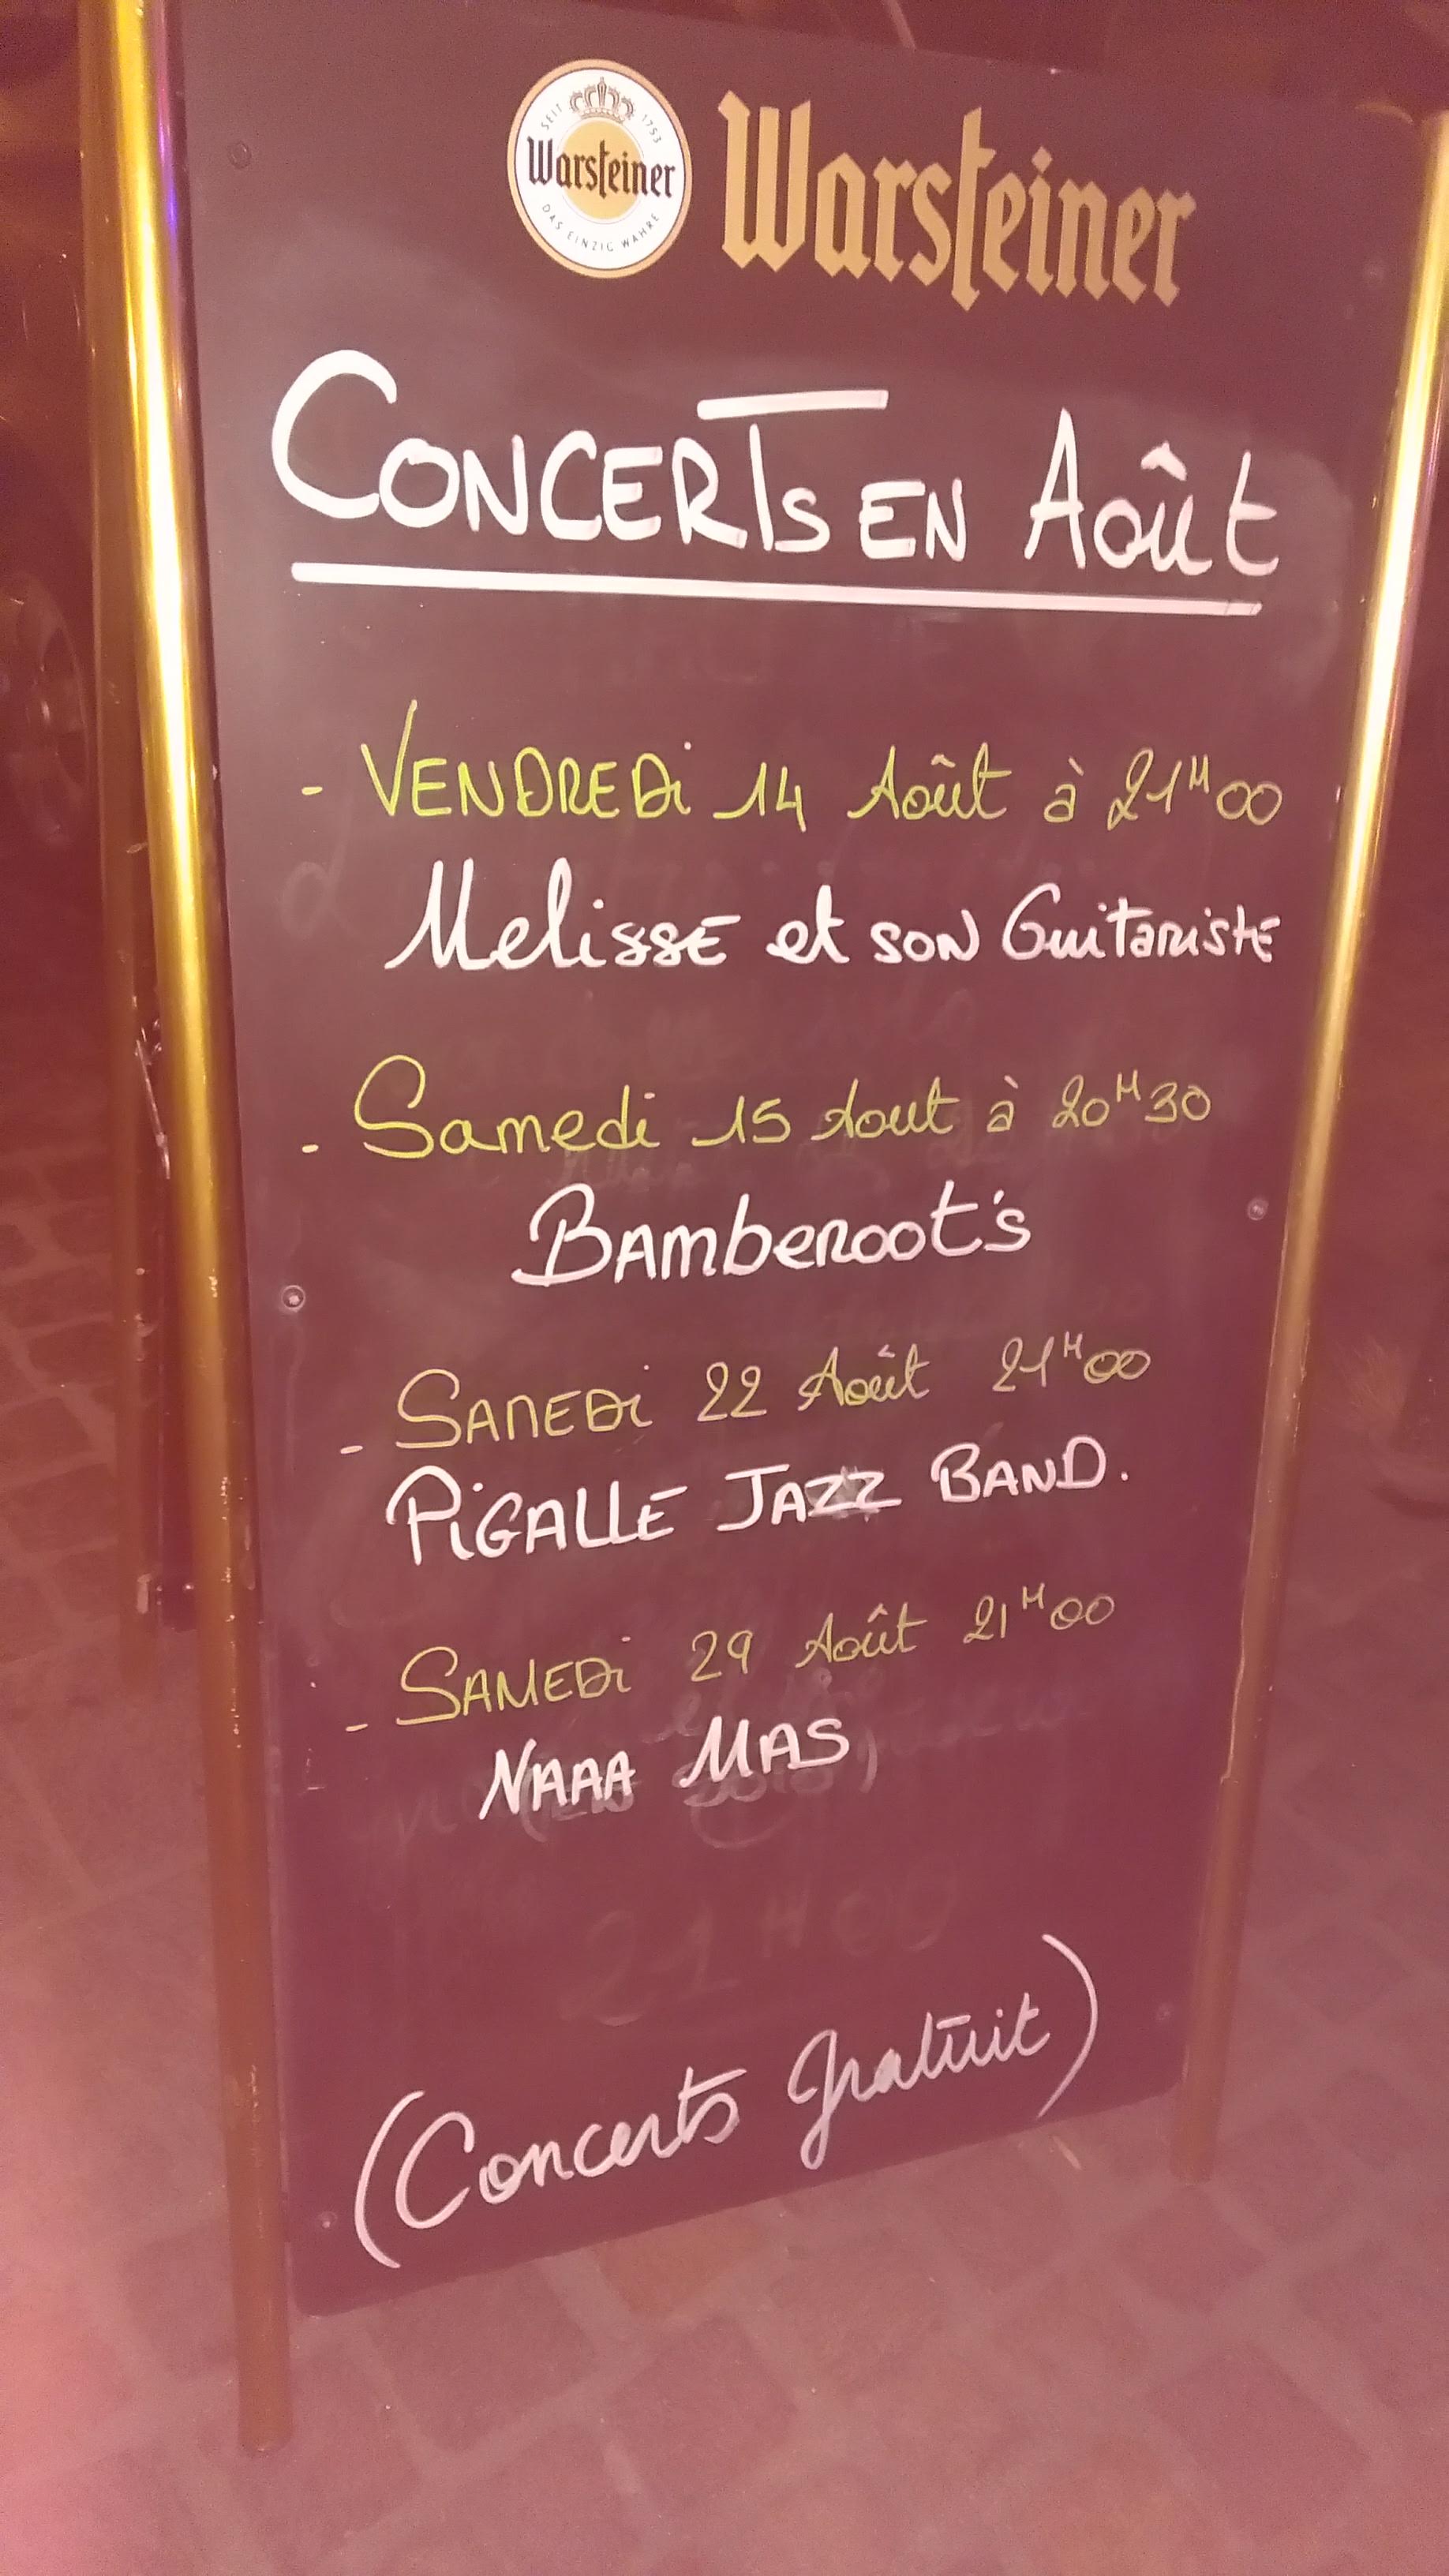 SEIT 1753
Warsteiner
DAS EINZIG WAHRE
Warsteiner
CONCERTS EN Août
- VENDREDi 14 Août à 21H00
Melisse et SON Guitariste
- Samedi 15 Aout à 20H30
BAmberoot's
- SAMEDi 22 Août 21H00
PiGALLE JAZZ BAND.
- SAMEDi 29 Août 21H00
NAAA MAS
21H00
(Concerts Gratuit)